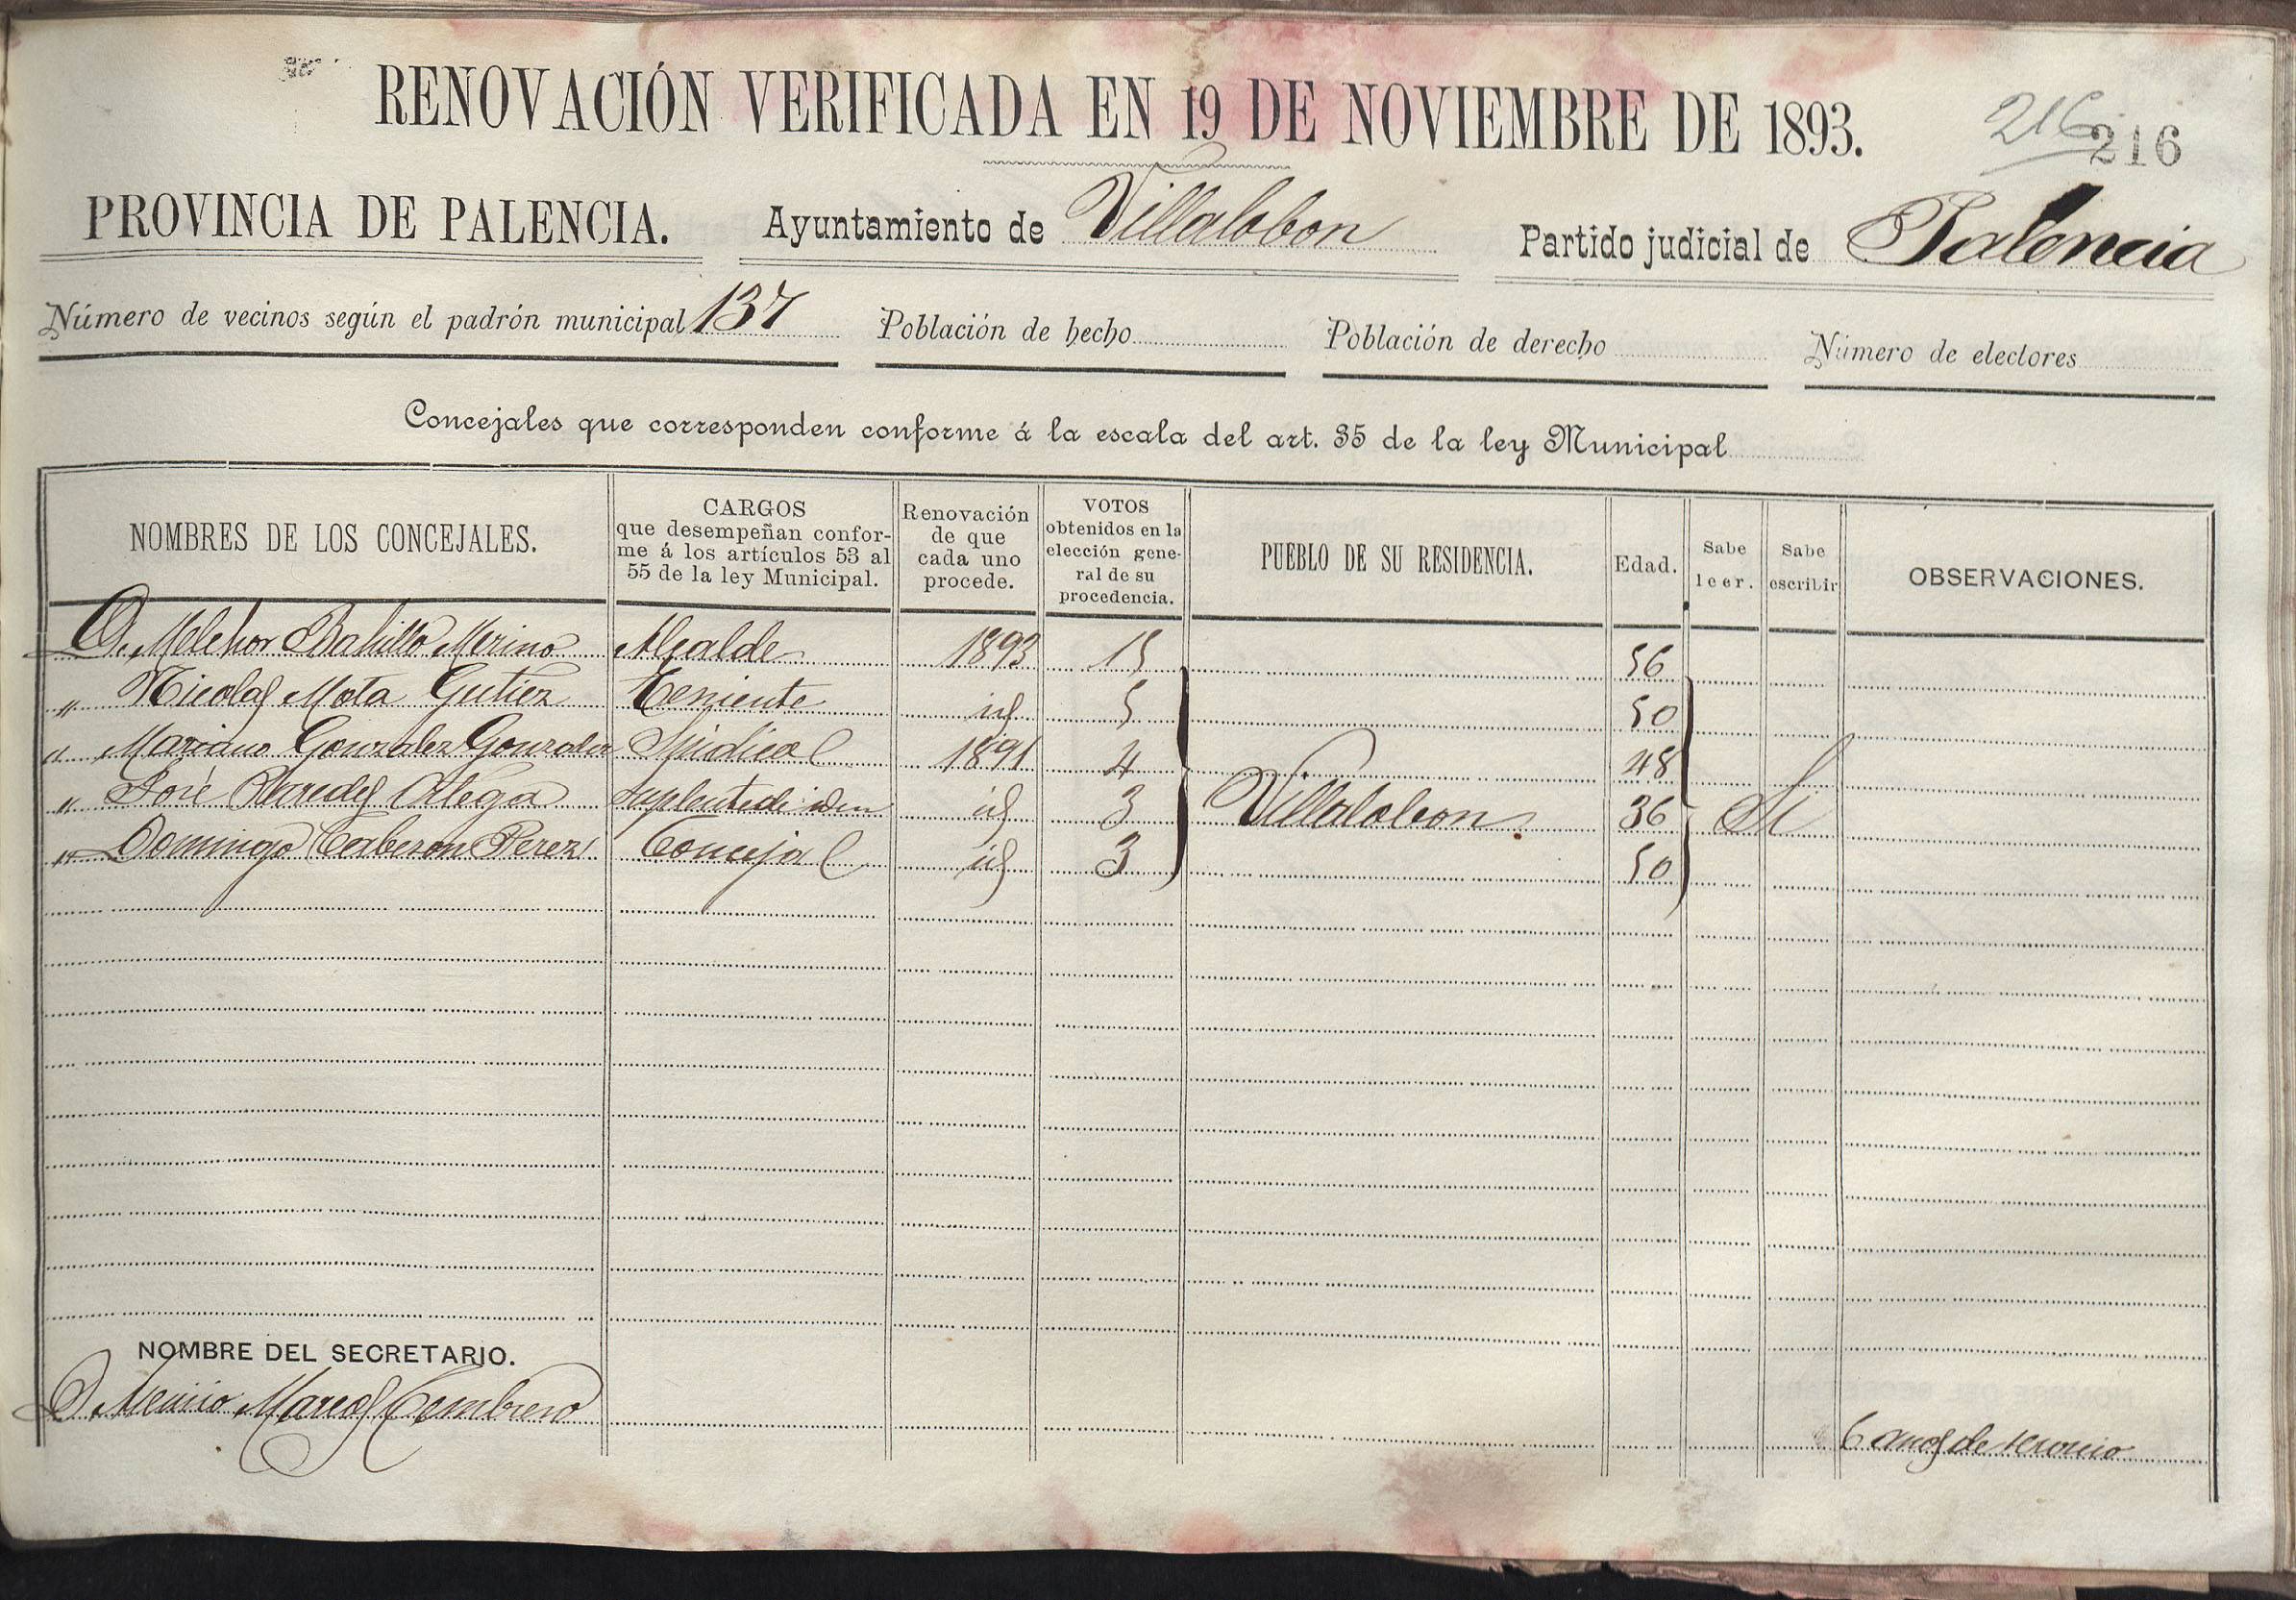 RENOVACIÓN VERIFICADA EN 19 DE NOVIEMBRE DE 1893.
216 216
PROVINCIA DE PALENCIA. Ayuntamiento de Villalobon Partido judicial de Palencia
Número de vecinos según el padrón municipal 137 Población de hecho Población de derecho Número de electores
Concejales que corresponden conforme á la escala del art. 35 de la ley Municipal
NOMBRES DE LOS CONCEJALES.
CARGOS
que desempeñan confor-
me á los artículos 53 al
55 de la ley Municipal.
Renovación
de que
cada uno
procede.
VOTOS
obtenidos en la
elección gene-
ral de su
procedencia.
PUEBLO DE SU RESIDENCIA.
Edad.
Sabe
leer.
Sabe
escribir
OBSERVACIONES.
D. Melchor Merino Alcalde 1893 15 56
" Nicolas Mota Teniente id 5 50
" Mariano Gonzalez Gonzalez Sindico 1891 4 48
" José Paredes Suplente de idem id 3 Villalobon 36 Si
" Domingo Perez Concejal id 3 50
NOMBRE DEL SECRETARIO.
D. Marcos Cembrero 6 años de servicio